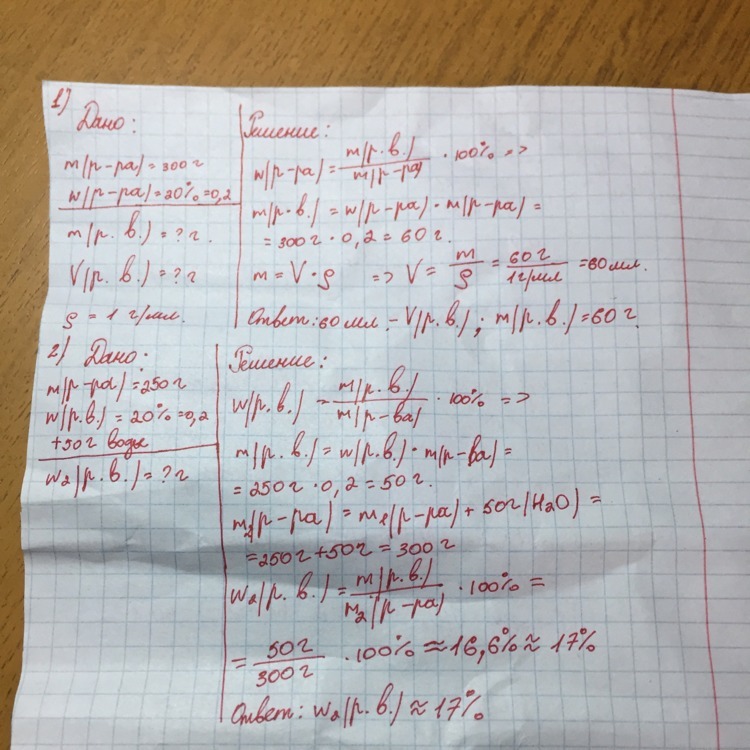 1)
Дано:
m(р-ра) = 300 г
w(р-ра) = 20% = 0,2
m(р. в.) = ? г.
V(р. в.) = ? г
ρ = 1 г/мл.
Решение:
w(р-ра) = m(р. в.) / m(р-ра) · 100% =>
m(р. в.) = w(р-ра) · m(р-ра) =
= 300 г · 0,2 = 60 г.
m = V · ρ => V = m / ρ = 60 г / 1 г/мл = 60 мл.
Ответ: 60 мл. - V(р. в.); m(р. в.) = 60 г.
2) Дано:
m(р-ра) = 250 г
w(р.в.) = 20% = 0,2
+50 г воды
w2(р. в.) = ? г
Решение:
w(р. в.) = m(р. в.) / m(р-ва) · 100% =>
m(р. в.) = w(р. в.) · m(р-ва) =
= 250 г · 0,2 = 50 г.
m2(р-ра) = m1(р-ра) + 50 г (H2O) =
= 250 г + 50 г = 300 г
w2(р. в.) = m(р. в.) / m2(р-ра) · 100% =
= 50 г / 300 г · 100% ≈ 16,6% ≈ 17%
Ответ: w2(р. в.) ≈ 17%